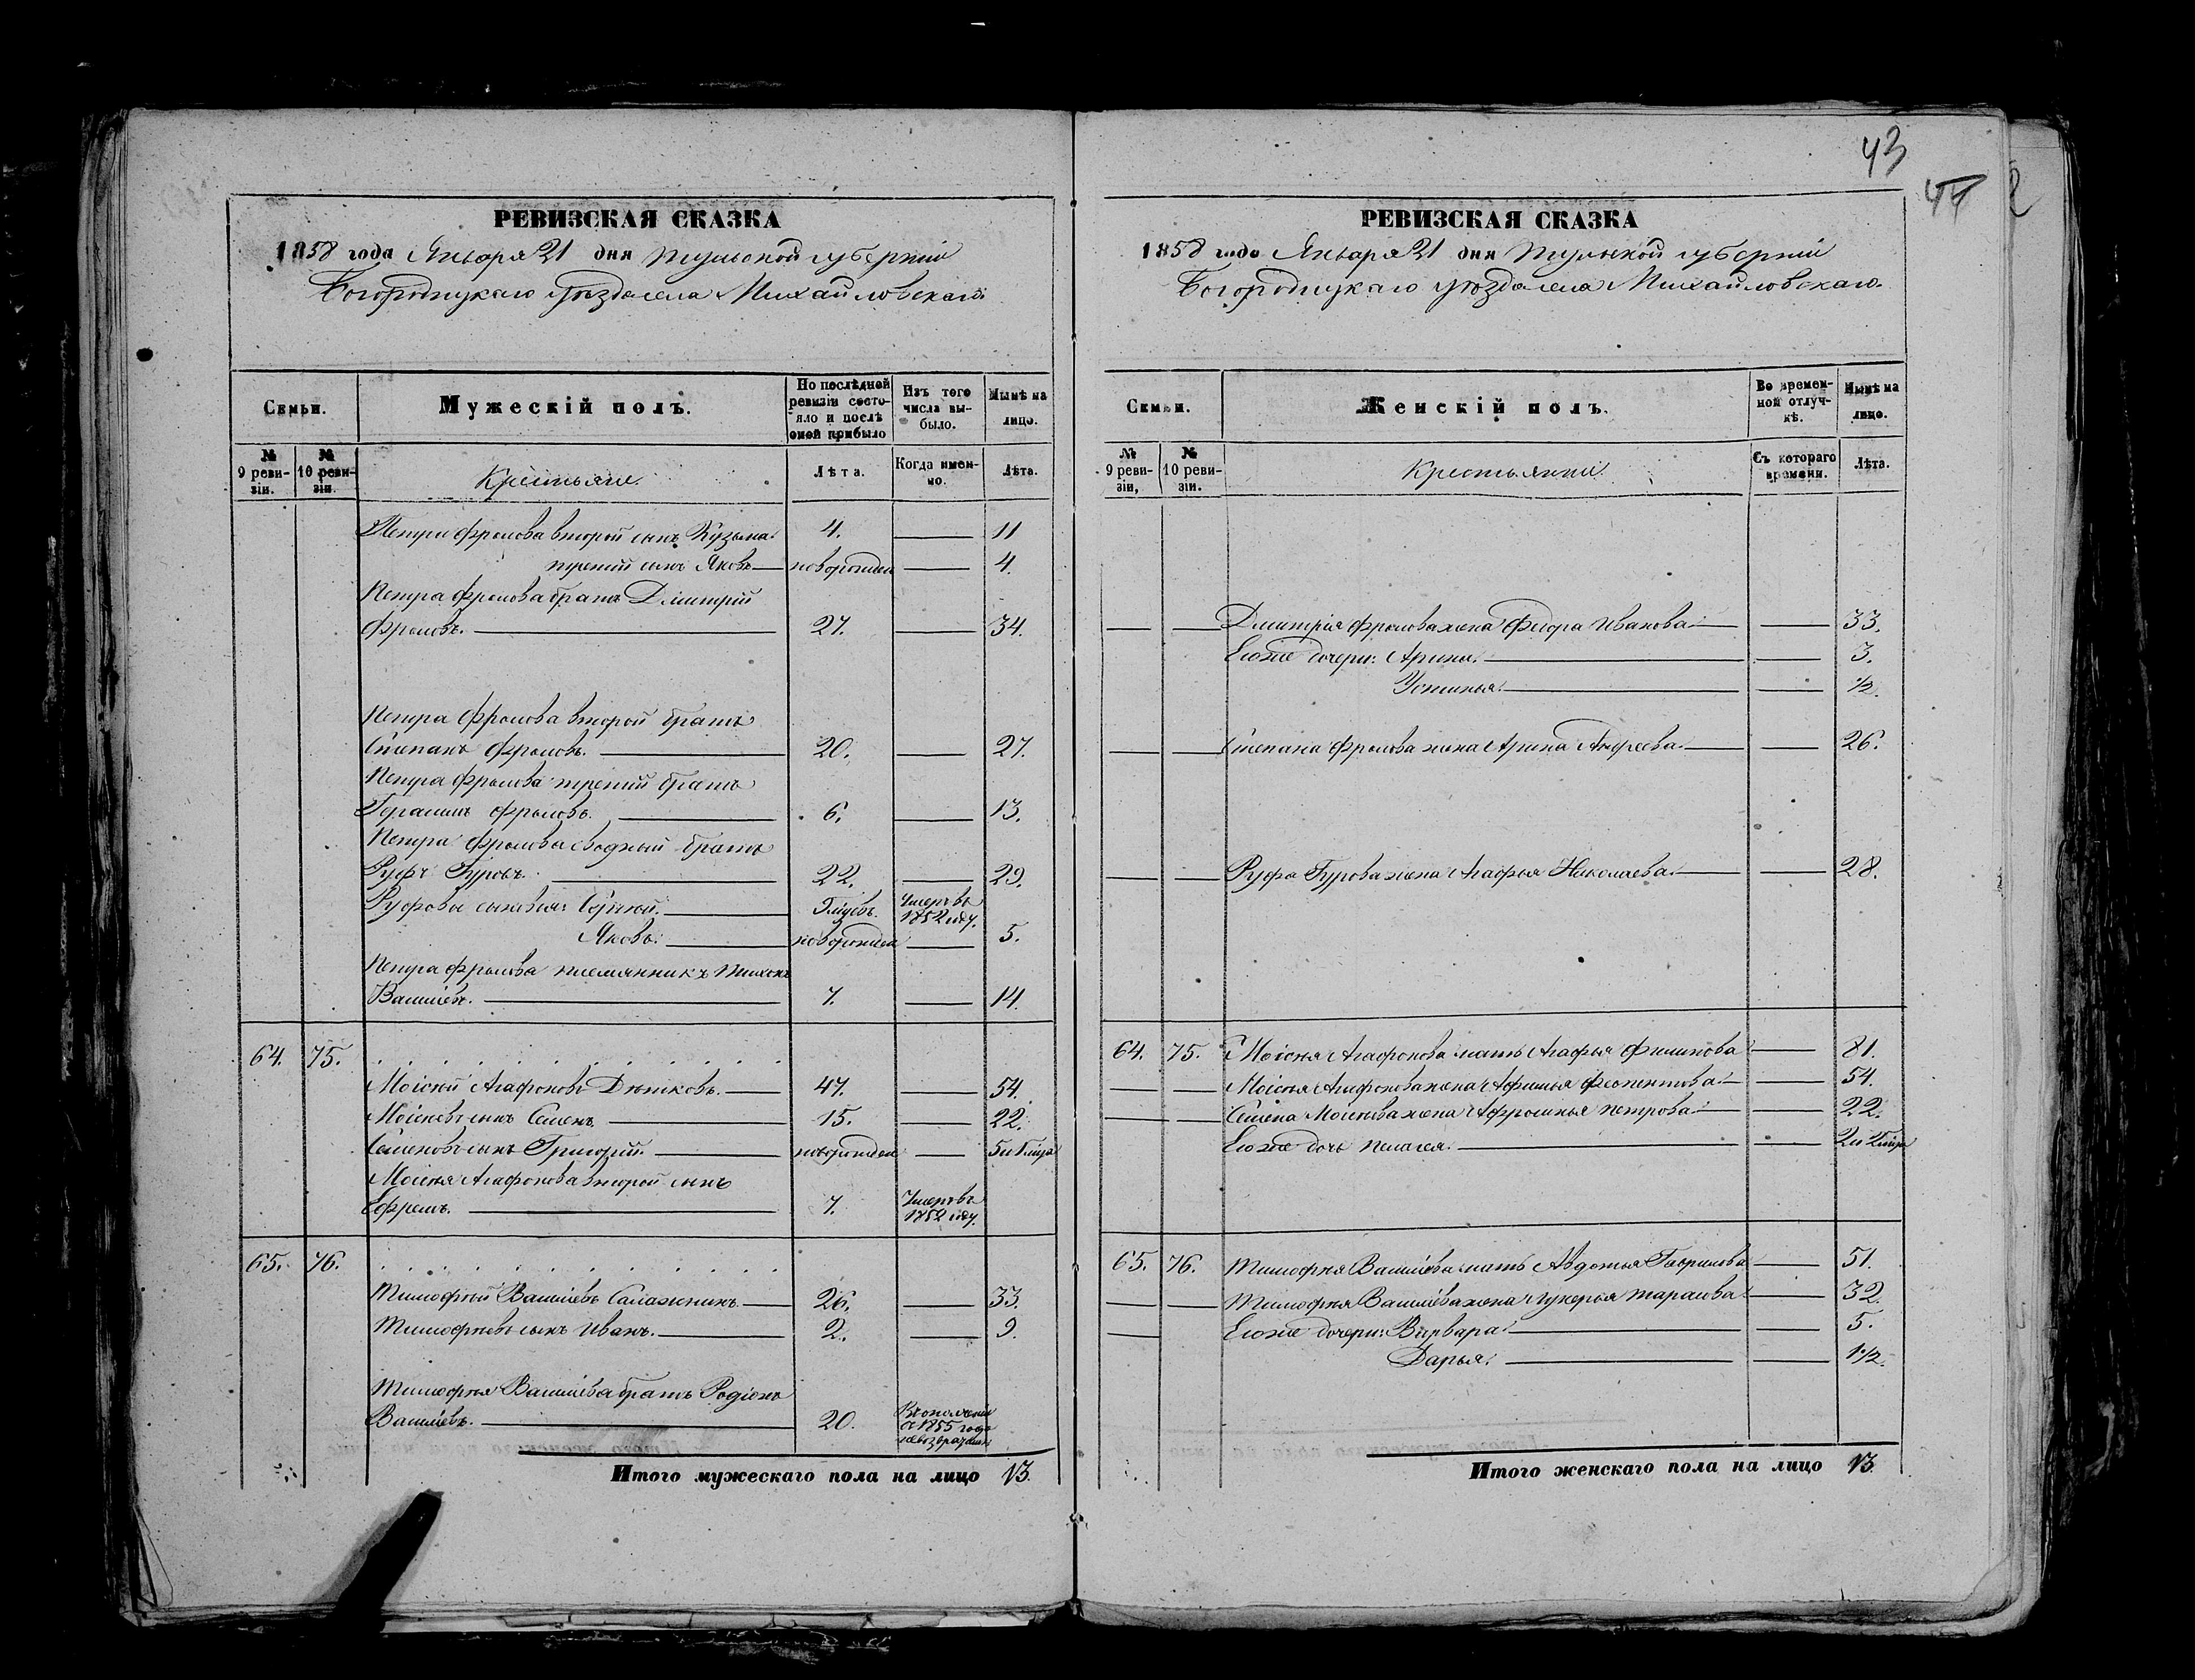 43
44
2
РЕВИЗСКАЯ СКАЗКА
1858 года Января 21 дня Тульской губерніи
Богородицкаго уѣзда села Михайловскаго.
Семьи.
Мужескій полъ.
По послѣдней ревизіи состояло и послѣ оной прибыло
Изъ того числа выбыло.
Нынѣ на лицо.
№ 9 ревизіи.
№ 10 ревизіи.
Крестьяне.
Лѣта.
Когда именно.
Лѣта.
Петра Фролова второй сынъ Кузьма 4. 11
третій сынъ Яковъ новорожден 4.
Петра Фролова братъ Дмитрій
Фроловъ. 27. 34.
Петра Фролова второй братъ
Степанъ Фроловъ. 20. 27.
Петра Фролова третій братъ
Герасимъ Фроловъ. 6. 13.
Петра Фролова сводный братъ
Руфъ Гуровъ. 22. 29.
Руфовы сыновья: Сергѣй. Умеръ въ 1852 году.
Яковъ. новорожден 5.
Петра Фролова племянникъ Тихонъ
Васильевъ. 7. 14.
64. 75.
Моисей Агафоновъ Дюжковъ. 47. 54.
Моисеевъ сынъ Семенъ. 15. 22.
Семеновъ сынъ Григорій. новорожден
Моисея Агафонова второй сынъ
Ефремъ. 7. Умеръ въ 1852 году.
65. 76.
Тимофей Васильевъ 26. 33.
Тимофеевъ сынъ Иванъ. 2. 9.
Тимофея Васильева братъ Родіонъ
Васильевъ. 20. Въ ополченіи съ 1855 года невозвращенъ
Итого мужескаго пола на лицо 13.
РЕВИЗСКАЯ СКАЗКА
1858 года Января 21 дня Тульской губерніи
Богородицкаго уѣзда села Михайловскаго.
Семьи.
Женскій полъ.
Во временной отлучкѣ.
Нынѣ на лицо.
№ 9 ревизіи,
№ 10 ревизіи.
Крестьянки
Съ котораго времени.
Лѣта.
Дмитрія Фролова жена Федора Иванова 33.
Егоже дочери: Арина. 3.
Устинья. 1/2.
Степана Фролова жена Арина Андреева 26.
Руфа Гурова жена Агафья Николаева 28.
64. 75. Моисея Агафонова мать Агафья Филипова 81.
Моисея Агафонова жена Афимья 54.
Семена Моисеева жена Афросинья Петрова 22.
Егоже дочь Пелагея.
65. 76. Тимофея Васильева мать Авдотья Гаврилова 51.
Тимофея Васильева жена Лукерья Тарасова 32.
Егоже дочери: Варвара 5.
Дарья. 1 1/2.
Итого женскаго пола на лицо 13